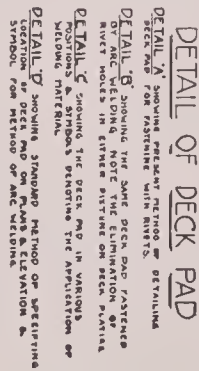 DETAIL OF DECK PAD
DETAIL 'A' SHOWING PRESENT METHOD OF DETAILING
DECK PAD FOR FASTENING WITH RIVETS.
DETAIL 'B' SHOWING THE SAME DECK PAD FASTENED
BY ARC WELDING NOTE THE ELIMINATION OF
RIVET HOLES IN EITHER FIXTURE OR DECK PLATING
DETAIL 'C' SHOWING THE DECK PAD IN VARIOUS
POSITIONS & SYMBOLS DENOTING THE APPLICATION OF
WELDING MATERIAL
DETAIL 'D' SHOWING STANDARD METHOD OF SPECIFYING
LOCATION OF DECK PAD ON PLANS & ELEVATION &
SYMBOL FOR METHOD OF ARC WELDING